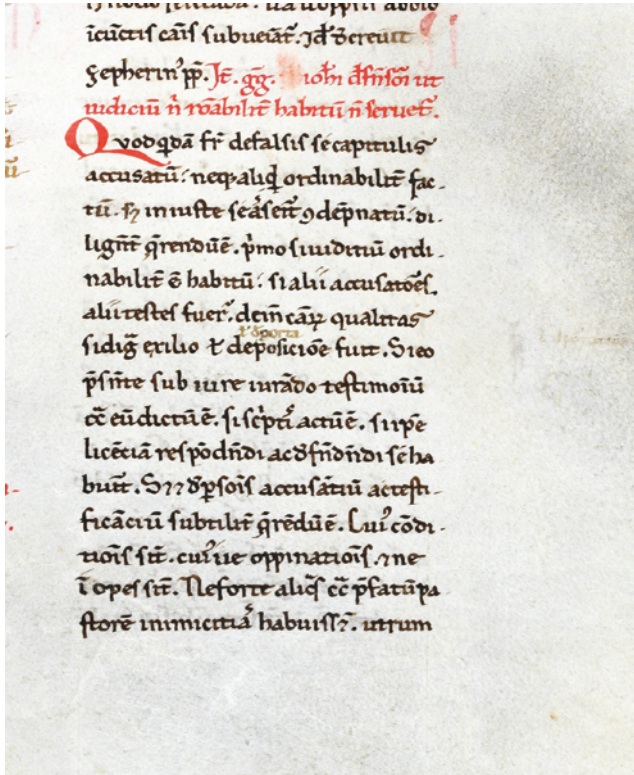 icūctis cāis subueiat᷒. Id᷒ decreuit
zepherin᷒ pp̄. It̄. gḡ. ioh̄i d̄fn̄soɹi ut
iudiciū n̄ rōabilit̄ habitū n̄ seruet᷒.
Quod qdā fr̄ defalsis se capitulis
accusatū: neqꝫ aliqd ordinabilit̄ fac-
tū. sꝫ iniuste seāseit̄ ꝯdēpnatū. di-
lign̄t q̄rendūē. p̄mo si iuditiū ordi-
nabilit̄ ē habitū: si alii accusatoēs.
alii testes fuer̄. dein̄ cāꝝ qualitas
⁊ đporta
si diḡ exilio ⁊ deposiciōe fuit. Si eo
p̄sn̄te sub iure iurādo testimoīū
cc̄ eū dictūē. si sc̄ptī actūē. si ip̄e
licēciā respōdn̄di ac d̄fn̄dn̄di sē ha
buit. S⁊⁊ d̄ ꝑsoīs accusātiū ac testi-
ficāciū subtilit̄ q̄rēdūē. Cui᷒ cōdi-
tioīs sīt. cui᷒ ue oppinatioīs. ⁊ ne
īopes sīt. Ne forte aliqs cc̄ p̄fatū pa
storē inimicitiā habuiss⁊. utrum